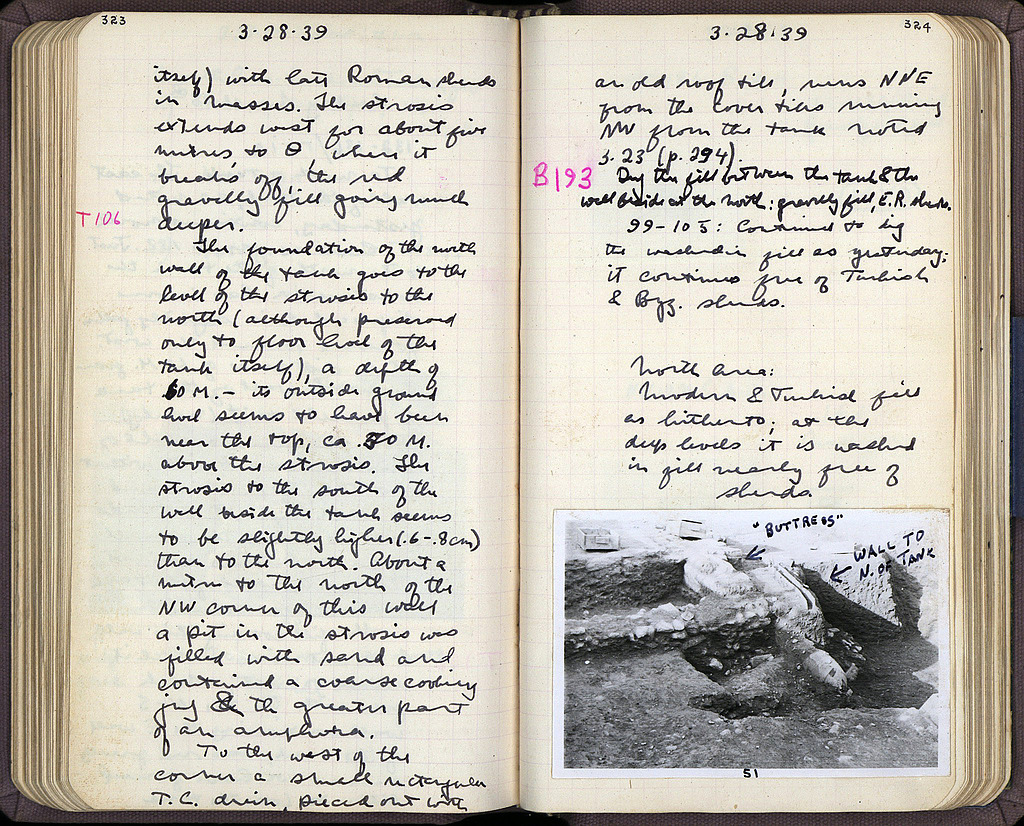 323
3·28·39
itself) with late Roman sherds
in masses. The strosis
extends west for about five
metres to θ, where it
breaks off, the red
gravelly fill going much
T 106
deeper.
The foundation of the north
wall of the tank goes to the
level of the strosis to the
north (although preserved
only to floor level of the
tank itself), a depth of
.60 M. – its outside ground
level seems to have been
near the top, ca .50 M.
above the strosis. The
strosis to the south of the
wall beside the tank seems
to be slightly higher (.6-.8cm)
than to the north. About a
metre to the north of the
NW corner of this wall
a pit in the strosis was
filled with sand and
contained a coarse cooking
jug & the greater part
of an amphora.
To the west of the
corner a small rectangular
T.C. drain, pieced out with
324
3·28·39
an old roof tile, runs NNE
from the cover tiles running
NW from the tank noted
3.23 (p. 294).
B 193
Dug the fill between the tank & the
wall beside at the north: gravelly fill, E.R. sherds.
99-103: Continued to dig
the washed in fill as yesterday;
it continues free of Turkish
& Byz. sherds.
North Area:
Modern & Turkish fill
as hitherto; at the
deep levels it is washed
in fill nearly free of
sherds.
"BUTTRESS"
WALL TO
N. OF TANK
51